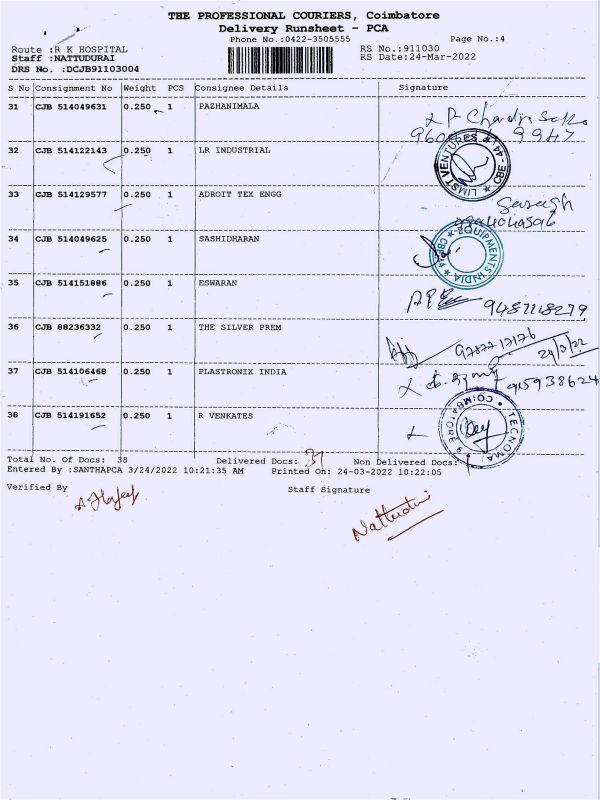 THE PROFESSIONAL COURIERS, Coimbatore
Delivery Runsheet - PCA
Phone No.:0422-3505555 Page No.:4
Route :R K HOSPITAL RS No.:911030
Staff :NATTUDURAI RS Date:24-Mar-2022
DRS No. :DCJB91103004
S No Consignment No Weight PCS Consignee Details Signature
31 CJB 514049631 0.250 1 PAZHANIMALA
32 CJB 514122143 0.250 1 LR INDUSTRIAL
LIMST VENTURES * CBE - 44 *
33 CJB 514129577 0.250 1 ADROIT TEX ENGG
34 CJB 514049625 0.250 1 SASHIDHARAN
EQUIPMENTS INDIA
35 CJB 514151886 0.250 1 ESWARAN
9487118279
36 CJB 88236332 0.250 1 THE SILVER PREM
24/3/22
37 CJB 514106468 0.250 1 PLASTRONIX INDIA
915938624
38 CJB 514191652 0.250 1 R VENKATES
TECNOMA
Total No. Of Docs: 38 Delivered Docs: 37 Non Delivered Docs: 1
Entered By :SANTHAPCA 3/24/2022 10:21:35 AM Printed On: 24-03-2022 10:22:05
Verified By Staff Signature
Nattudurai